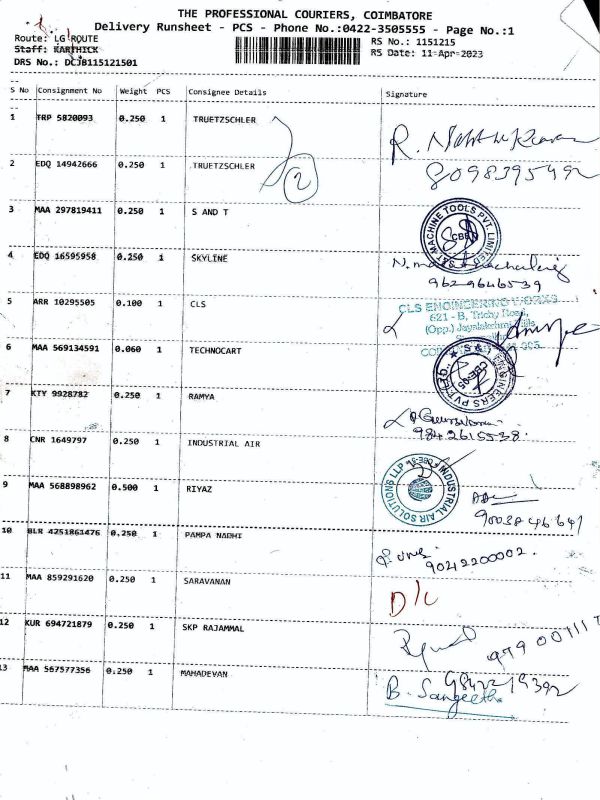 THE PROFESSIONAL COURIERS, COIMBATORE
Delivery Runsheet - PCS - Phone No.:0422-3505555 - Page No.:1
Route: LG ROUTE
RS No.: 1151215
Staff: KARTHICK
RS Date: 11-Apr-2023
DRS No.: DCJB115121501
S No Consignment No Weight PCS Consignee Details Signature
1 TRP 5820093 0.250 1 TRUETZSCHLER
2 EDQ 14942666 0.250 1 TRUETZSCHLER
2
8098395492
3 MAA 297819411 0.250 1 S AND T
S&T MACHINE TOOLS PVT. LIMITED
4 EDQ 16595958 0.250 1 SKYLINE
9629646539
5 ARR 10295505 0.100 1 CLS
CLS ENGINEERING WORKS
621 - B, Trichy Road,
(Opp.) Jayalakshmi
6 MAA 569134591 0.060 1 TECHNOCART
7 KTY 9928782 0.250 1 RAMYA
9842615538.
8 CNR 1649797 0.250 1 INDUSTRIAL AIR
INDUSTRIAL AIR SOLUTIONS LLP
9 MAA 568898962 0.500 1 RIYAZ
10 BLR 4251861476 0.250 1 PAMPA NADHI
9042200002.
11 MAA 859291620 0.250 1 SARAVANAN
D/C
12 KUR 694721879 0.250 1 SKP RAJAMMAL
13 MAA 567577356 0.250 1 MAHADEVAN
B. Sangeetha